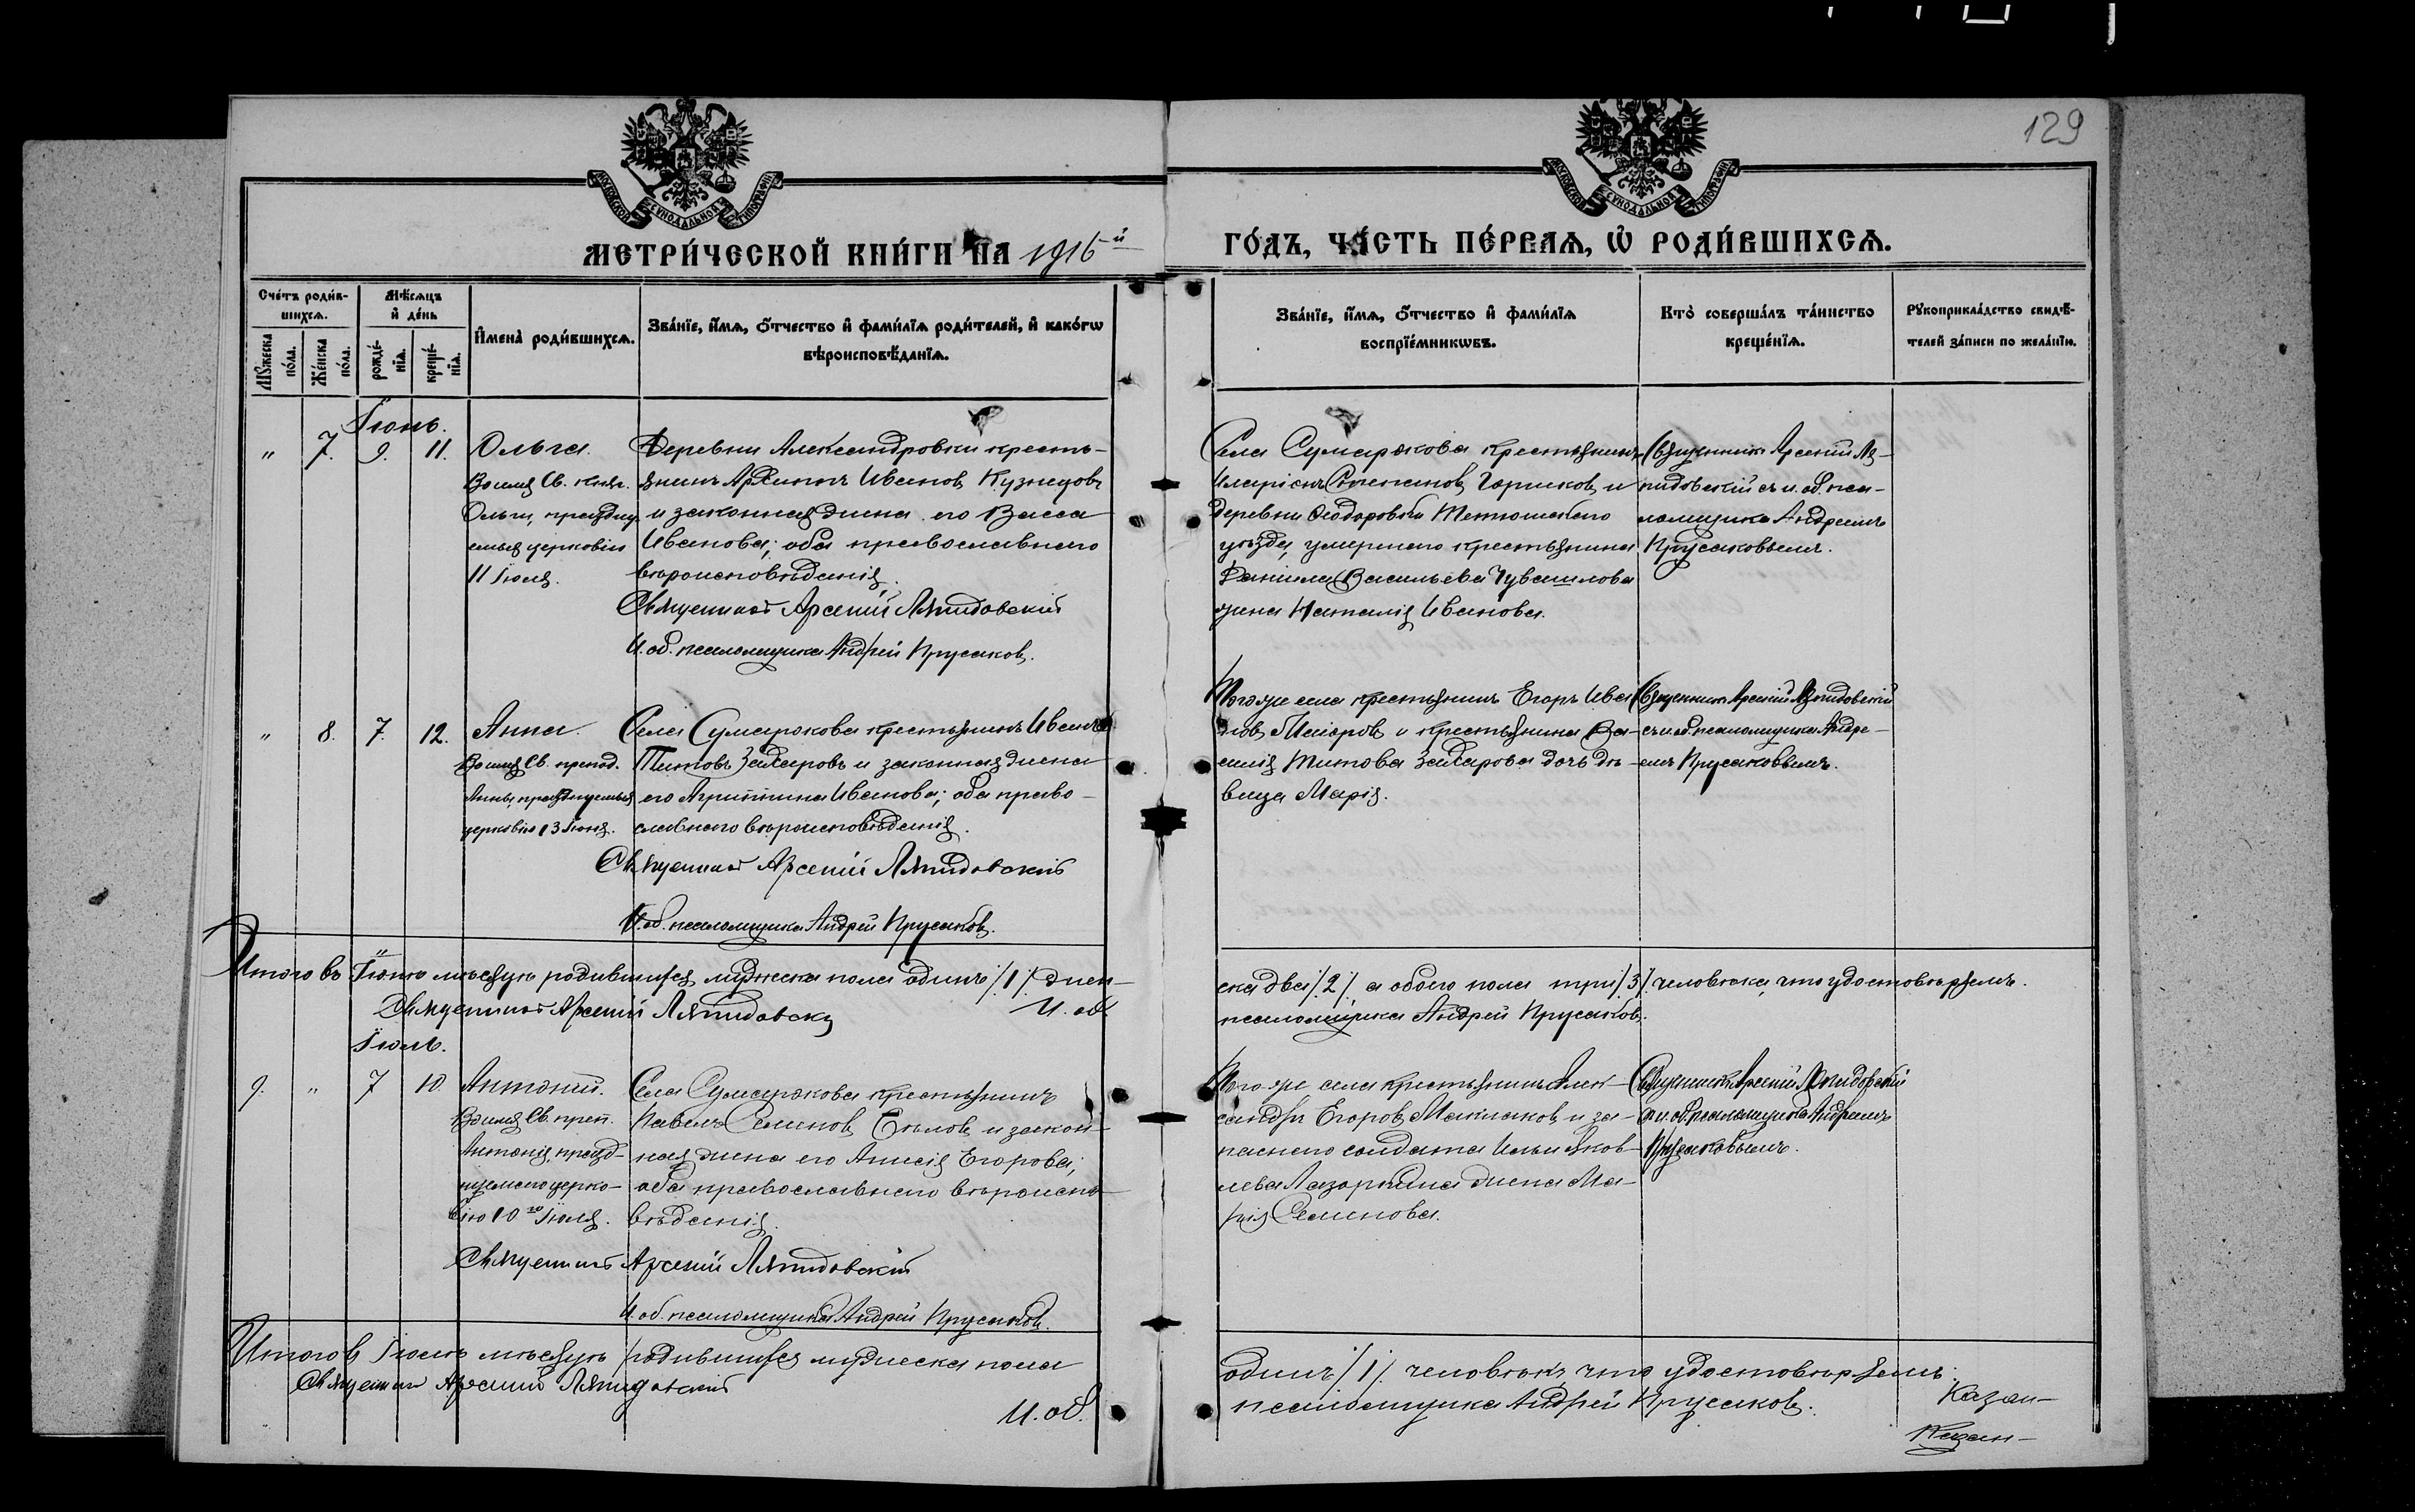 129
МЕТРИ́ЧЕСКОЙ КНИ́ГИ НА 1916й
ГО́ДЪ, ЧА́СТЬ ПЕ́РВАѦ, Ѡ҆ РОДИ́ВШИХСѦ.
Сче́тъ роди́в-
шихсѧ.
Мꙋ́жеска по́ла.
Же́нска по́ла.
Мѣ́сѧцъ
и҆ де́нь
рожде́-
нїѧ.
креще́-
нїѧ.
И҆мена̀ роди́вшихсѧ.
Зва́нїе, и҆́мѧ, ѻ҆́тчество и҆ фами́лїѧ роди́телей, и҆ како́гѡ
вѣроисповѣ́данїѧ.
Зва́нїе, и҆́мѧ, ѻ҆́тчество и҆ фами́лїѧ
воспрїе́мникѡвъ.
Кто̀ соверша́лъ та́инство
креще́нїѧ.
Рꙋкоприкла́дство свидѣ́-
телей за́писи по жела́нїю.
Іюнь.
" 7. 9. 11. Ольга.
Во имя Св. княг.
Ольги, праздну
емыя церковію
11 Іюля.
Деревни Александровки кресть-
янинъ Архипъ Иванов Кузнецовъ
и законная жена его Васса
Иванова; оба православнаго
вѣроисповѣданія.
Священникъ Арсеній Ляпидовскій
И. об. псаломщика Андрей Прусаков.
Села Сумарокова крестьянинъ
Иларіонъ Степанов Горшков и
деревни Ѳеодоровки Тетюшскаго
уѣзда, умершаго крестьянина
Даніила Васильева Чувашлова
жена Наталія Иванова.
Священникъ Арсеній Ля-
пидовскій съ и. об. пса-
ломщика Андреемъ
Прусаковымъ.
" 8. 7. 12. Анна.
Во имя Св. препод.
Анны, празднуемыя
церковію 13 Іюня.
Села Сумарокова крестьянинъ Иванъ
Титовъ Захаровъ и законная жена
его Агриппина Иванова; оба право-
славнаго вѣроисповѣданія.
Священникъ Арсеній Ляпидовскій
И. об. псаломщика Андрей Прусаков.
Того же села крестьянинъ Егоръ Ива
нов и крестьянина Ва-
силія Титова Захарова дочь дѣ-
вица Марія.
Священникъ Арсеній Ляпидовскій
съ и. об. псаломщика Андре-
емъ Прусаковымъ.
Итого въ Іюнѣ мѣсяцѣ родившихся мужеска пола одинъ /1/ жен-
ска два /2/, а обоего пола три /3/ человѣка, что удостовѣряемъ.
Священникъ Арсеній Ляпидовскій И. об.
псаломщика Андрей Прусаков.
Іюль.
9. " 7 10 Антоній.
Во имя Св. преп.
Антонія, празд-
нуемаго церко-
вію 10го Іюля.
Села Сумарокова крестьянинъ
Павелъ Семинов Бѣлов и закон-
ная жена его Анисія Егорова;
оба православнаго вѣроиспо-
вѣданія.
Священникъ Арсеній Ляпидовскій
И. об. псаломщика Андрей Прусаков.
Того же села крестьянинъ Алек-
сандръ Егоров Маклаков и за-
паснаго солдата Ильи Яков-
лева Лазарева жена Ма-
рія Семинова.
Священникъ Арсеній Ляпидовскій
съ и. об. псаломщика Андреемъ
Прусаковымъ.
Итого въ Іюлѣ мѣсяцѣ родившихся мужеска пола
одинъ /1/ человѣкъ, что удостовѣряемъ.
Священникъ Арсеній Ляпидовскій
И. об.
псаломщика Андрей Прусаков.
Казан-
Казан-